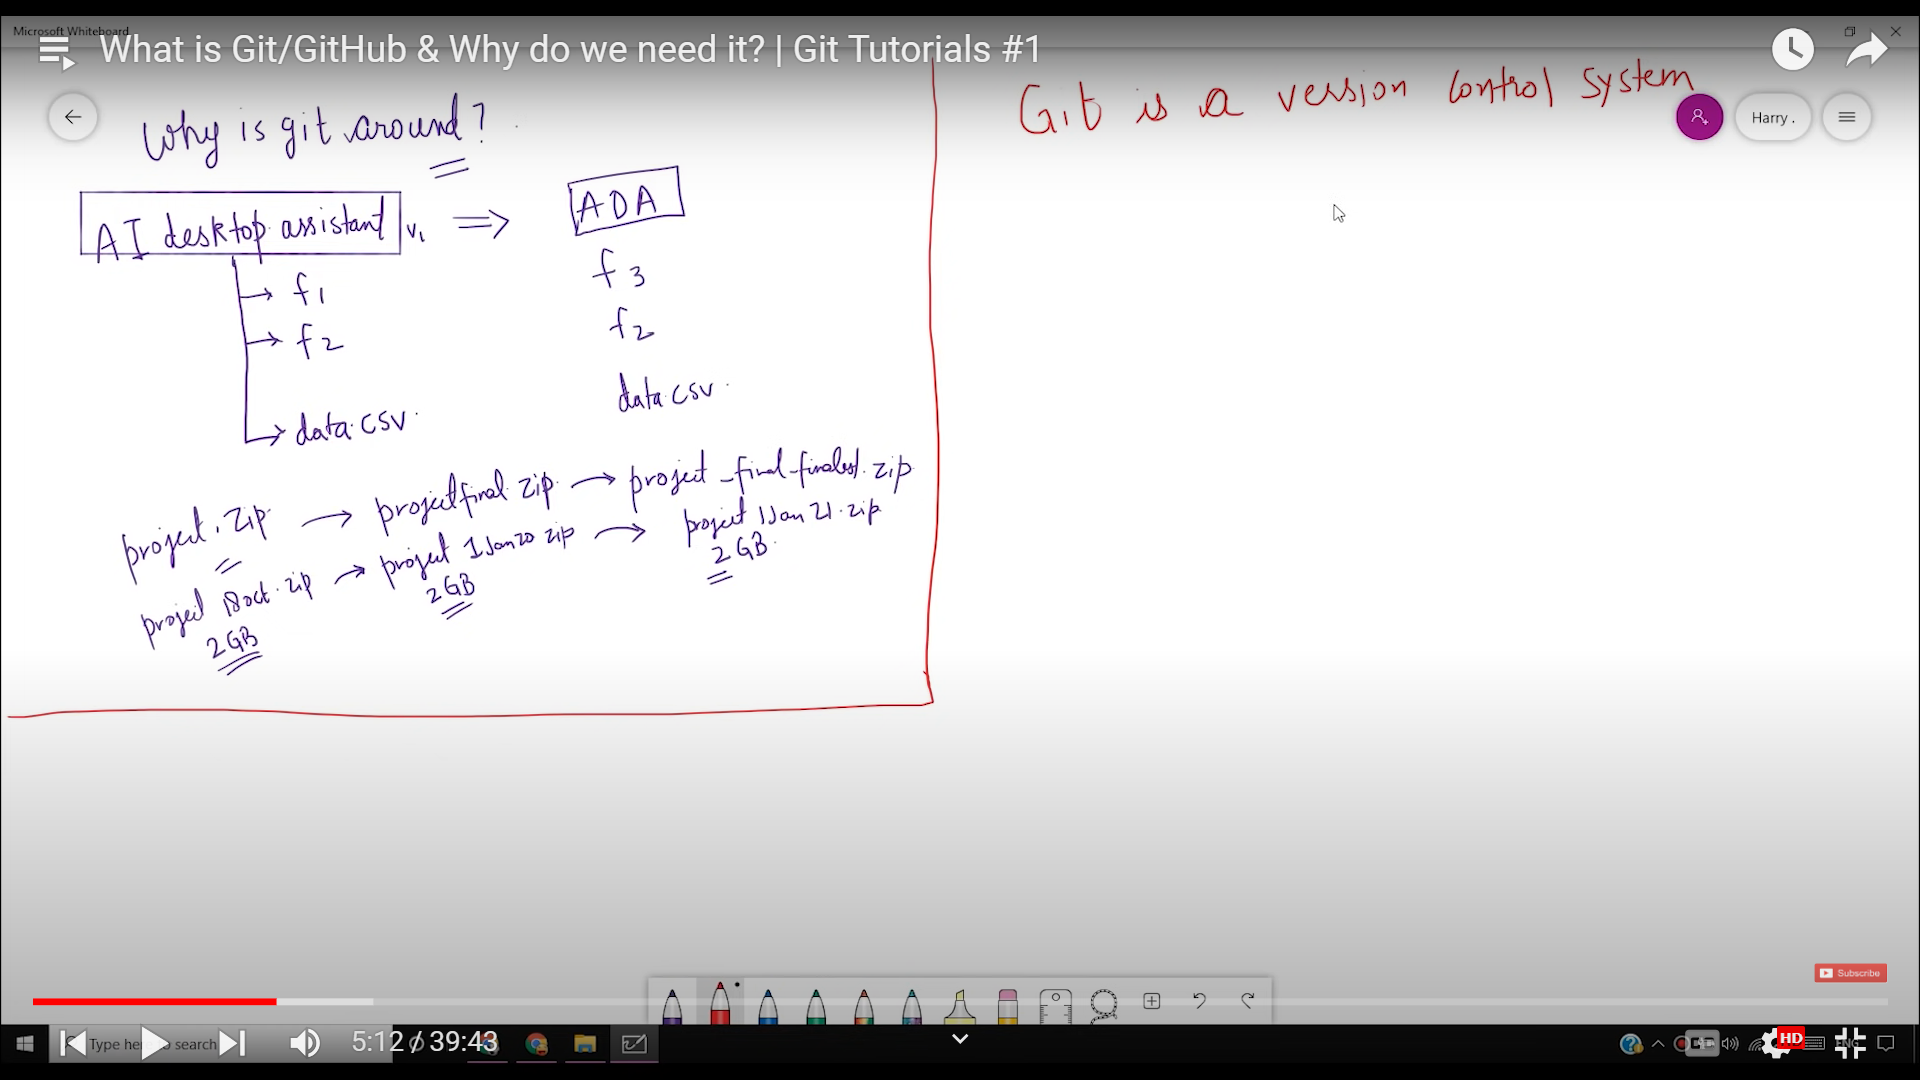 Microsoft Whiteboard
What is Git/GitHub & Why do we need it? | Git Tutorials #1
Why is git around?
AI desktop assistant v1 ⇒ ADA
f1
f2
data.csv
f3
f2
data.csv
project.zip → projectfinal.zip → project_final_finalest.zip
project 18oct.zip → project 1Jan20 zip → project 1Jan21.zip
2GB
2GB
2GB
Git is a version control system
Harry .
Subscribe
5:12 / 39:43
Type here to search
HD
ENG